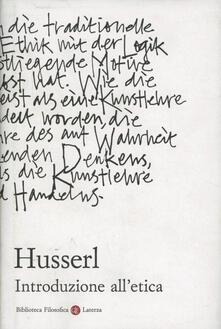 die traditionelle
Ethik mit der Logik
liegende Motive
hat. Wie die
als eine Kunstlehre
worden, die
des auf Wahrheit
enden Denkens,
die Kunstlehre
Handelns.
Husserl
Introduzione all'etica
Biblioteca Filosofica Laterza